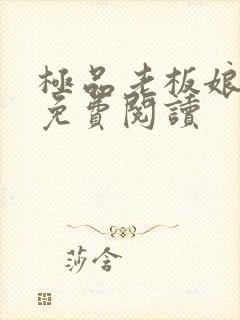 極品老板娘
免費閱讀
莎含